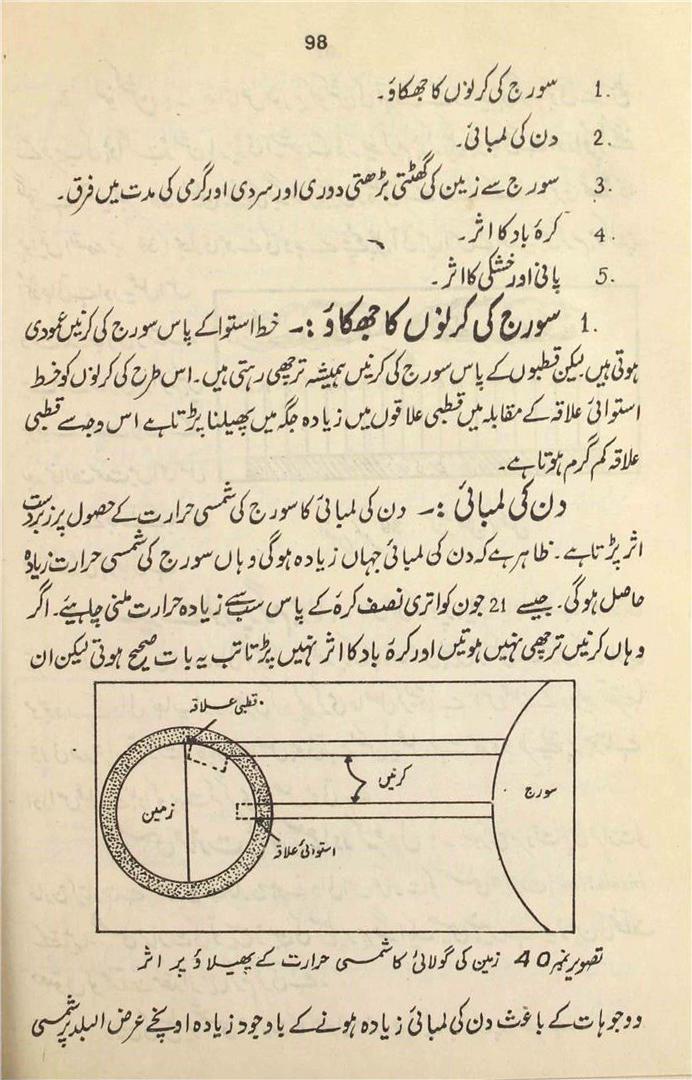 98
1. سورج کی کرنوں کا جھکاؤ۔
2. دن کی لمبائی۔
3. سورج سے زمین کی گھٹتی بڑھتی دوری اور سردی اور گرمی کی مدت میں فرق۔
4. کرۂ باد کا اثر۔
5. پانی اور خشکی کا اثر۔
1. سورج کی کرنوں کا جھکاؤ :۔ خط استوا کے پاس سورج کی کرنیں عمودی
ہوتی ہیں لیکن قطبوں کے پاس سورج کی کرنیں ہمیشہ ترچھی رہتی ہیں۔ اس طرح کی کرنوں کو خط
استوائی علاقہ کے مقابلہ میں قطبی علاقوں میں زیادہ جگہ میں پھیلنا پڑتا ہے اس وجہ سے قطبی
علاقہ کم گرم ہوتا ہے۔
دن کی لمبائی :۔ دن کی لمبائی کا سورج کی شمسی حرارت کے حصول پر زبردست
اثر پڑتا ہے۔ ظاہر ہے کہ دن کی لمبائی جہاں زیادہ ہوگی وہاں سورج کی شمسی حرارت زیادہ
حاصل ہوگی۔ جیسے 21 جون کو اتری نصف کرہ کے پاس سب سے زیادہ حرارت ملنی چاہیئے۔ اگر
وہاں کرنیں ترچھی نہیں ہوتیں اور کرۂ باد کا اثر نہیں پڑتا تب یہ بات صحیح ہوتی لیکن ان
قطبی علاقہ
زمین
کرنیں
سورج
استوائی علاقہ
تصویر نمبر 40 زمین کی گولائی کا شمسی حرارت کے پھیلاؤ پر اثر
دو وجوہات کے باعث دن کی لمبائی زیادہ ہونے کے باوجود زیادہ اونچے عرض البلد پر شمسی